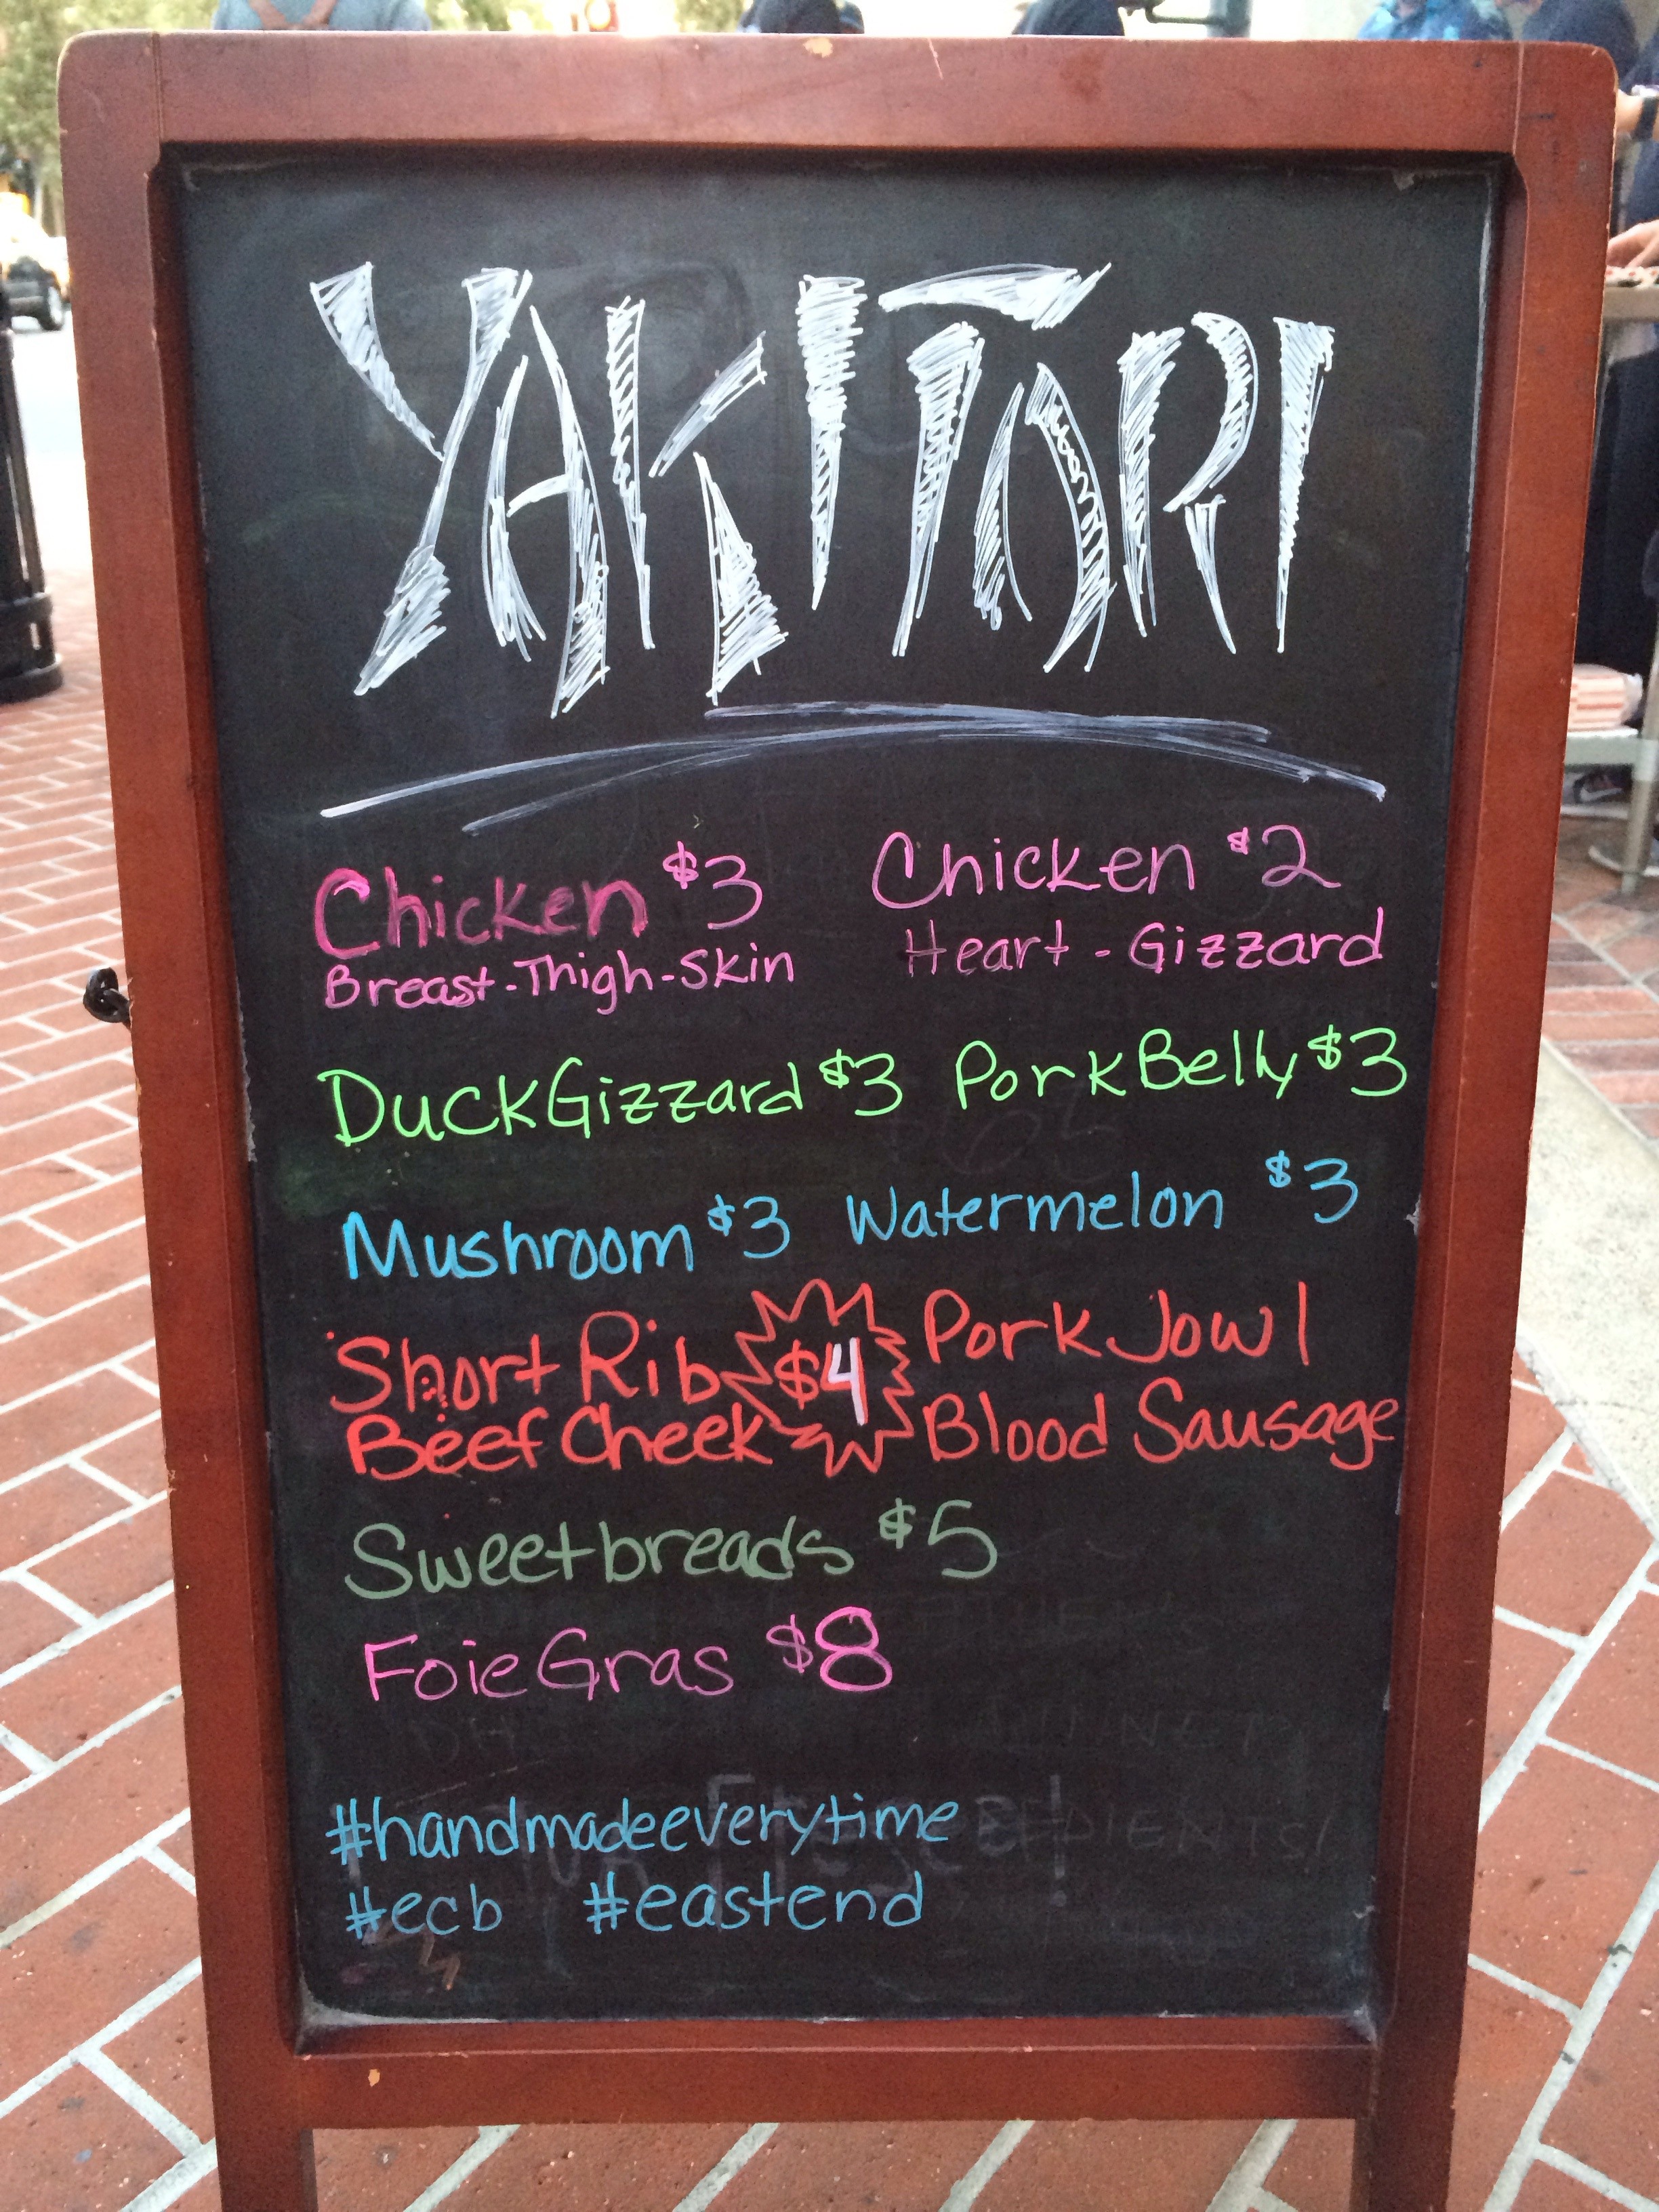 YAKITORI
Chicken $3 Chicken $2
Breast-Thigh-Skin Heart-Gizzard
Duck Gizzard $3 Pork Belly $3
Mushroom $3 Watermelon $3
Short Rib $4 Pork Jowl
Beef Cheek Blood Sausage
Sweetbreads $5
Foie Gras $8
#handmadeeverytime
#ecb #eastend